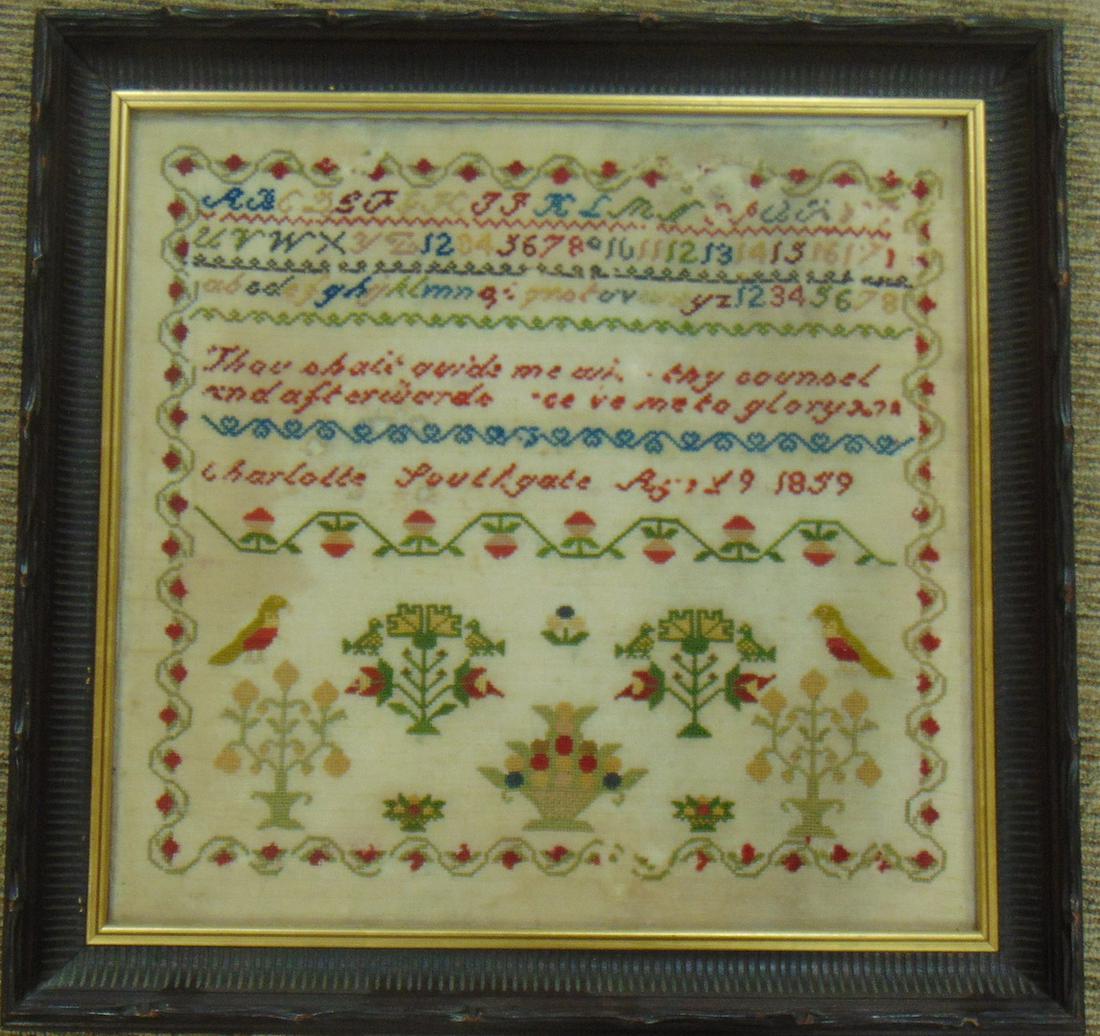 A B C D E F G H I J K L M N O P Q R
U V W X Y Z 12 34 5 6 7 8 9 10 11 12 13 14 15 16 17 1
abcdefghyklmn q tuv yz 12345678
Thou shalt guide me thy counsel
and afterwards me to glory
Charlotte Southgate 1859